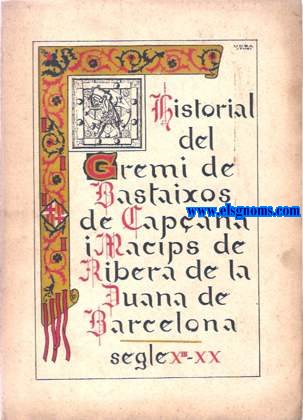 Historial
del
Gremi de
Bastaixos
de Capçana
www.elsgnoms.com
i Macips de
Ribera de la
Duana de
Barcelona
segle XIII-XX